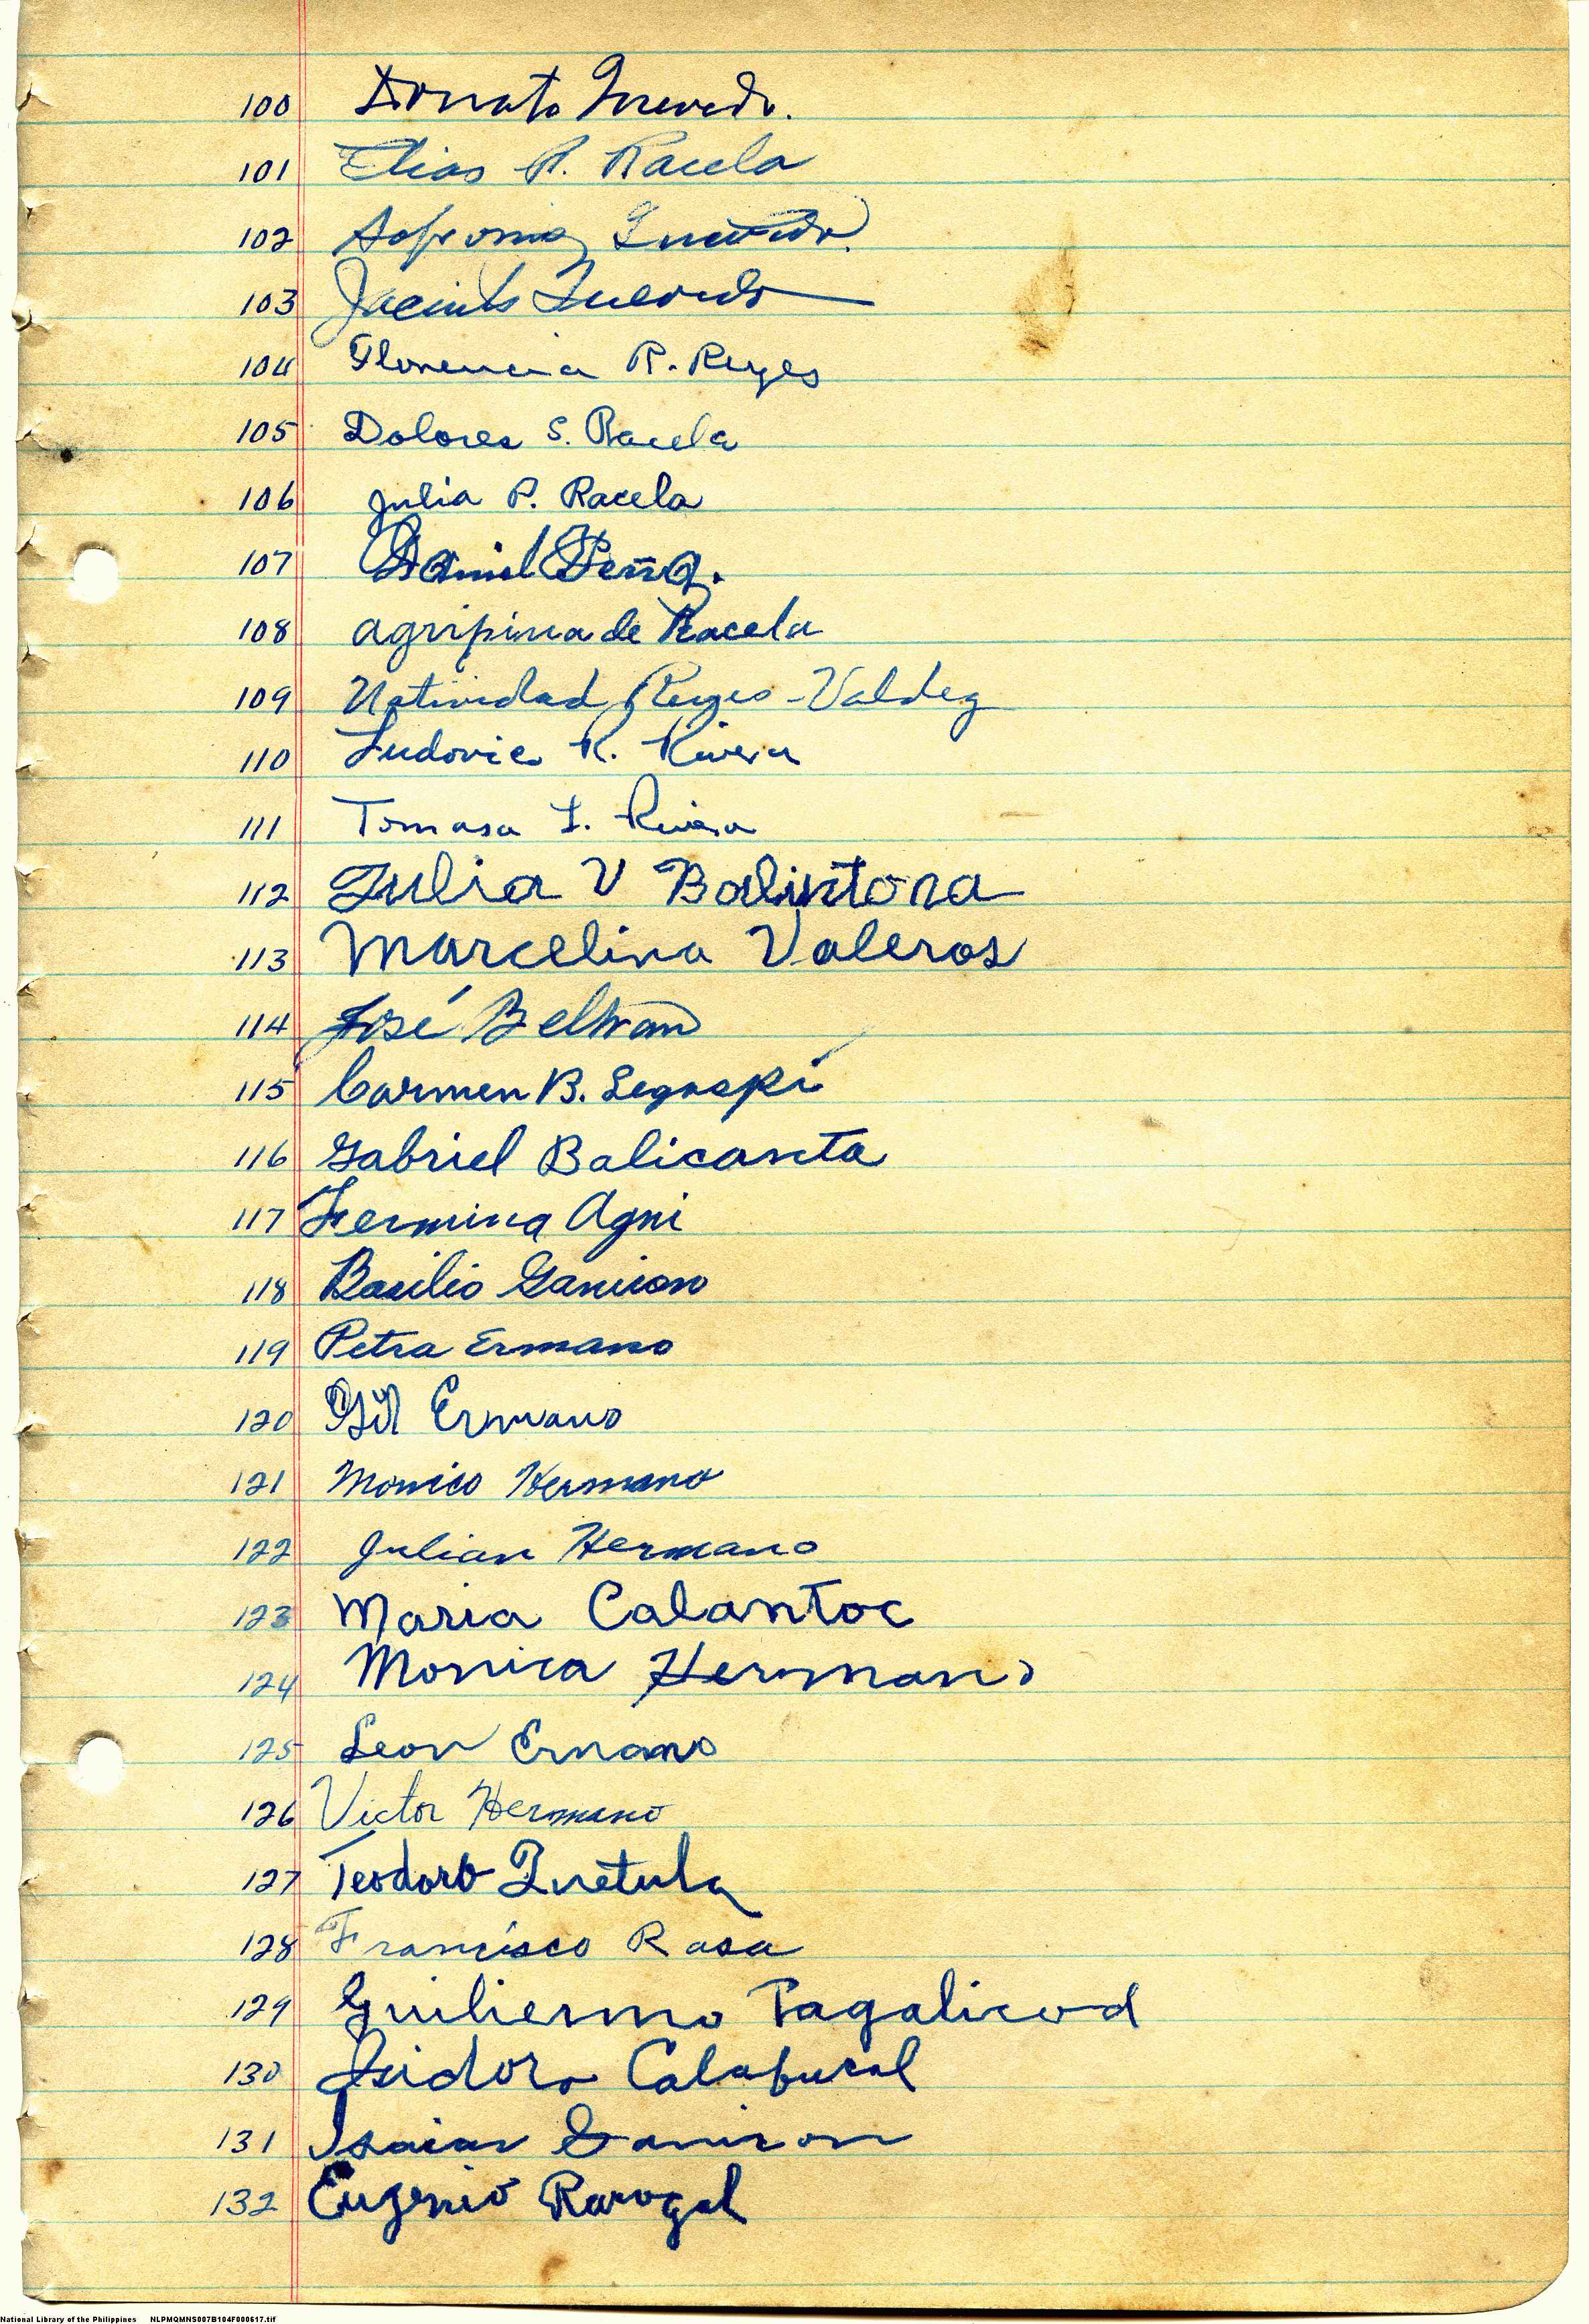 100 Donato Quevedo.
101 Elias R. Racela
102 Quevedo
103 Jacinto Quevedo
104 Florencia R. Reyes
105 Dolores S. Racela
106 Julia P. Racela
107 Daniel Peña.
108 Agripina de Racela
109 Natividad Reyes-Valdez
110 Ludovic R. Rivera
111 Tomasa L. Rivera
112 Julia V Balintona
113 Marcelina Valeros
114 José Beltran
115 Carmen B. Legaspi
116 Gabriel Balicanta
117 Fermina Agni
118 Basilio Ganiron
119 Petra Ermano
120 Gil Ermano
121 Monico Hermano
122 Julian Hermano
123 Maria Calantoc
124 Monica Hermano
125 Leon Ernano
126 Victor Hermano
127 Teodoro Quetula
128 Francisco Rasa
129 Guiliermo Pagalicod
130 Isidoro
131 Isaias Ganiron
132 Eugenio Ravogal
National Library of the Philippines NLPMQMNS007B104F000617.tif